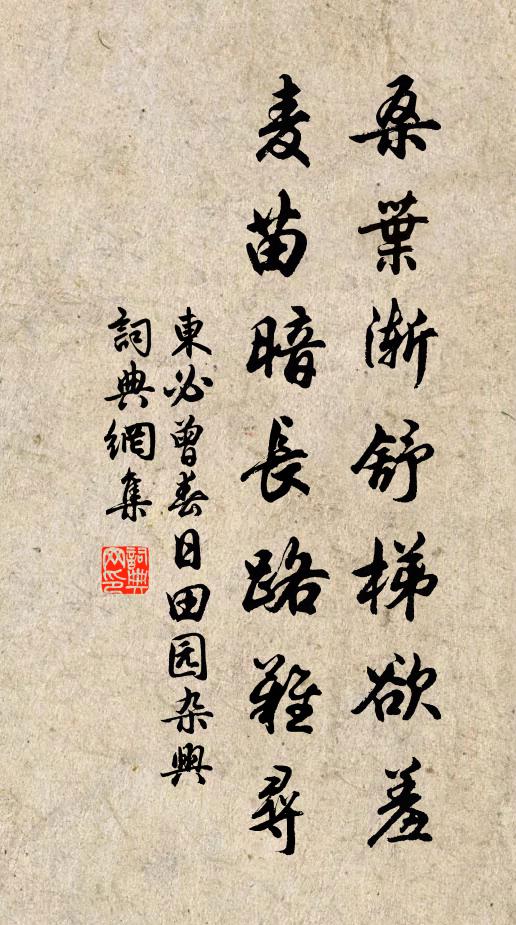 桑葉漸舒梯欲羞
麦苗暗長路難尋
東必曾春日田园杂興
詞典網集
詞典
网印